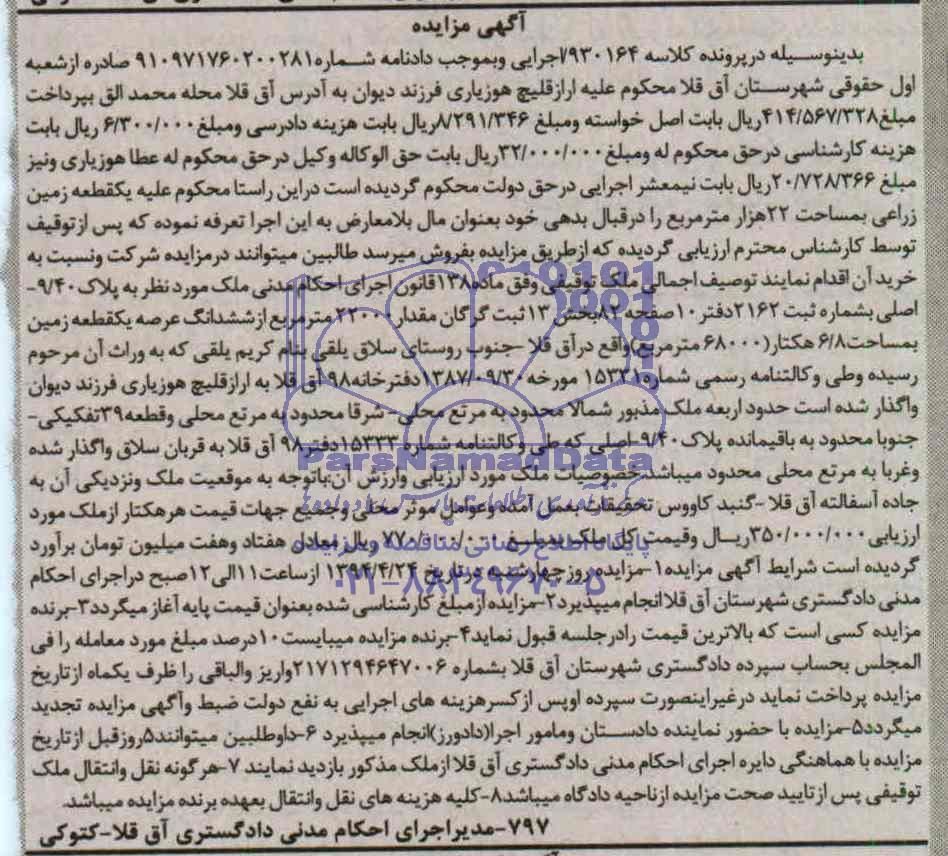 آگهی مزایده
بدینوسیله درپرونده کلاسه ۹۳۰۱۶۴/اجرایی وبموجب دادنامه شماره۹۱۰۹۹۷۱۷۶۰۲۰۰۲۸۱ صادره ازشعبه
اول حقوقی شهرستان آق قلا محکوم علیه ارازقلیچ هوزیاری فرزند دیوان به آدرس آق قلا محله محمد الق بپرداخت
مبلغ۴۱۴/۵۶۷/۳۲۸ریال بابت اصل خواسته ومبلغ ۸/۲۹۱/۳۴۶ریال بابت هزینه دادرسی ومبلغ۶/۳۰۰/۰۰۰ ریال بابت
هزینه کارشناسی درحق محکوم له ومبلغ۳۲/۰۰۰/۰۰۰ریال بابت حق الوکاله وکیل درحق محکوم له عطا هوزیاری ونیز
مبلغ ۲۰/۷۲۸/۳۶۶ریال بابت نیمعشر اجرایی درحق دولت محکوم گردیده است دراین راستا محکوم علیه یکقطعه زمین
زراعی بمساحت ۲۲هزار مترمربع را درقبال بدهی خود بعنوان مال بلامعارض به این اجرا تعرفه نموده که پس ازتوقیف
توسط کارشناس محترم ارزیابی گردیده که ازطریق مزایده بفروش میرسد طالبین میتوانند درمزایده شرکت ونسبت به
خرید آن اقدام نمایند توصیف اجمالی ملک توقیفی وفق ماده۱۳۸قانون اجرای احکام مدنی ملک مورد نظر به پلاک ۹/۴۰-
اصلی بشماره ثبت ۲۱۶۲دفتر ۱۰صفحه ۸۲بخش ۱۳ثبت گرگان مقدار۲۲۰۰۰مترمربع ازششدانگ عرصه یکقطعه زمین
بمساحت۶/۸ هکتار(۶۸۰۰۰ مترمربع)واقع درآق قلا -جنوب روستای سلاق یلقی بنام کریم یلقی که به وراث آن مرحوم
رسیده وطی وکالتنامه رسمی شماره۱۵۳۳۱ مورخه۱۳۸۷/۰۹/۳۰دفترخانه۹۸ آق قلا به ارازقلیچ هوزیاری فرزند دیوان
واگذار شده است حدود اربعه ملک مذبور شمالا محدود به مرتع محلی- شرقا محدود به مرتع محلی وقطعه۳۹تفکیکی-
جنوبا محدود به باقیمانده پلاک۹/۴۰-اصلی که طی وکالتنامه شماره ۱۵۳۳۳دفتر۹۸ آق قلا به قربان سلاق واگذار شده
وغربا به مرتع محلی محدود میباشد.خصوصیات ملک مورد ارزیابی وارزش آن:باتوجه به موقعیت ملک ونزدیکی آن به
جاده آسفالته آق قلا -گنبد کاووس تحقیقات بعمل آمده وعوامل موثر محلی وجمیع جهات قیمت هرهکتار ازملک مورد
ارزیابی۳۵۰/۰۰۰/۰۰۰ریال وقیمت کل ملک بمبلغ ۷۷۰/۰۰۰/۰۰۰ ریال معادل هفتاد وهفت میلیون تومان برآورد
گردیده است شرایط آگهی مزایده۱-مزایده روز چهارشنبه درتاریخ ۱۳۹۴/۴/۲۴ ازساعت۱۱الی۱۲صبح دراجرای احکام
مدنی دادگستری شهرستان آق قلاانجام میپذیرد۲-مزایده ازمبلغ کارشناسی شده بعنوان قیمت پایه آغاز میگردد۳-برنده
مزایده کسی است که بالاترین قیمت رادرجلسه قبول نماید۴-برنده مزایده میبایست۱۰درصد مبلغ مورد معامله را فی
المجلس بحساب سپرده دادگستری شهرستان آق قلا بشماره ۲۱۷۱۲۹۴۶۴۷۰۰۶واریز والباقی را ظرف یکماه ازتاریخ
مزایده پرداخت نماید درغیراینصورت سپرده اوپس ازکسرهزینه های اجرایی به نفع دولت ضبط وآگهی مزایده تجدید
میگردد۵-مزایده با حضور نماینده دادستان ومامور اجرا(دادورز)انجام میپذیرد ۶-داوطلبین میتوانند۵روزقبل ازتاریخ
مزایده با هماهنگی دایره اجرای احکام مدنی دادگستری آق قلا ازملک مذکور بازدید نمایند ۷-هرگونه نقل وانتقال ملک
توقیفی پس ازتایید صحت مزایده ازناحیه دادگاه میباشد۸-کلیه هزینه های نقل وانتقال بعهده برنده مزایده میباشد.
۷۹۷-مدیراجرای احکام مدنی دادگستری آق قلا-کتوکی
ParsNamadData
پایگاه اطلاع رسانی مناقصه و مزایده
۰۲۱-۸۸۳۴۹۶۷۰-۵